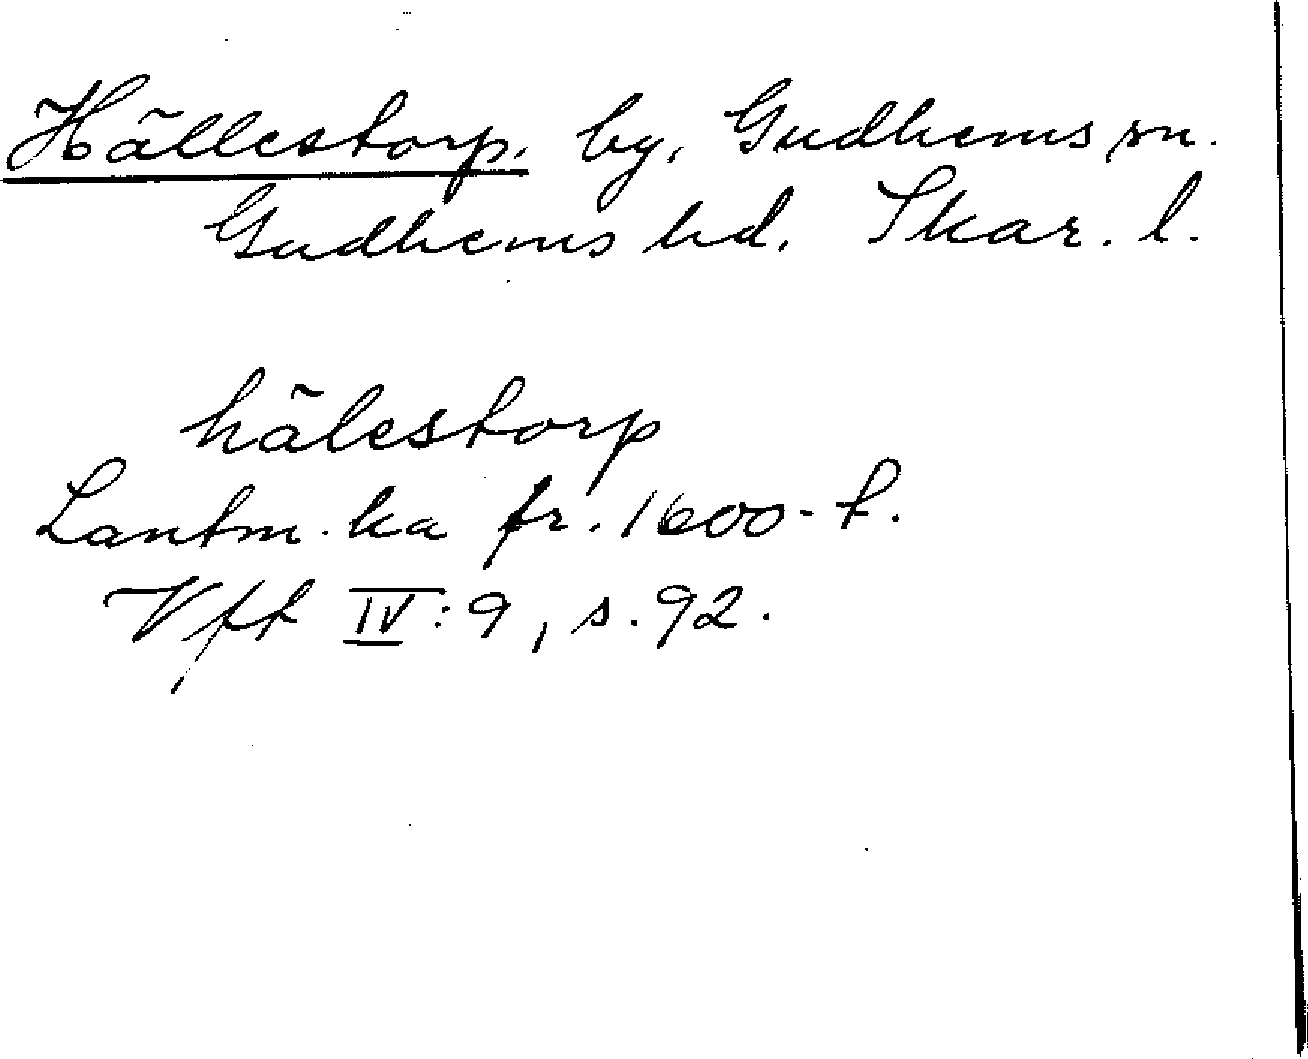 Hällestorp. by, Gudhems sn.
Gudhems hd. Skar. l.
hälestorp
Lantm. ka fr. 1600-t.
Vft IV:9, s. 92.